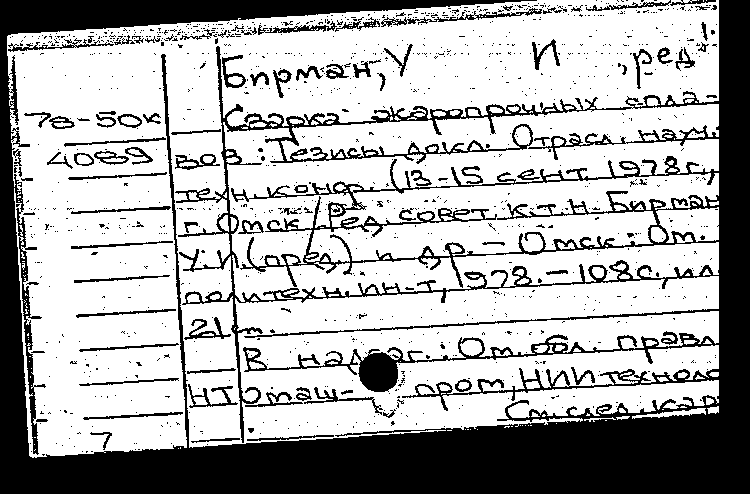 Бирман, У И , ред.
78-50к Сварка жаропрочных спла-
4089 вов : Тезисы докл. Отрасл. науч.
техн. конф. (13-15 сент. 1978 г.,
г. Омск Ред. совет. к.т.н. Бирман
У.И. (пред.) и др. - Омск : Ом.
политехн. ин-т, 1978. - 108 с., ил
21 см.
В надзаг. : Ом. обл. правл
НТОмаш- пром, НИИ техноло
См. след. кар
7